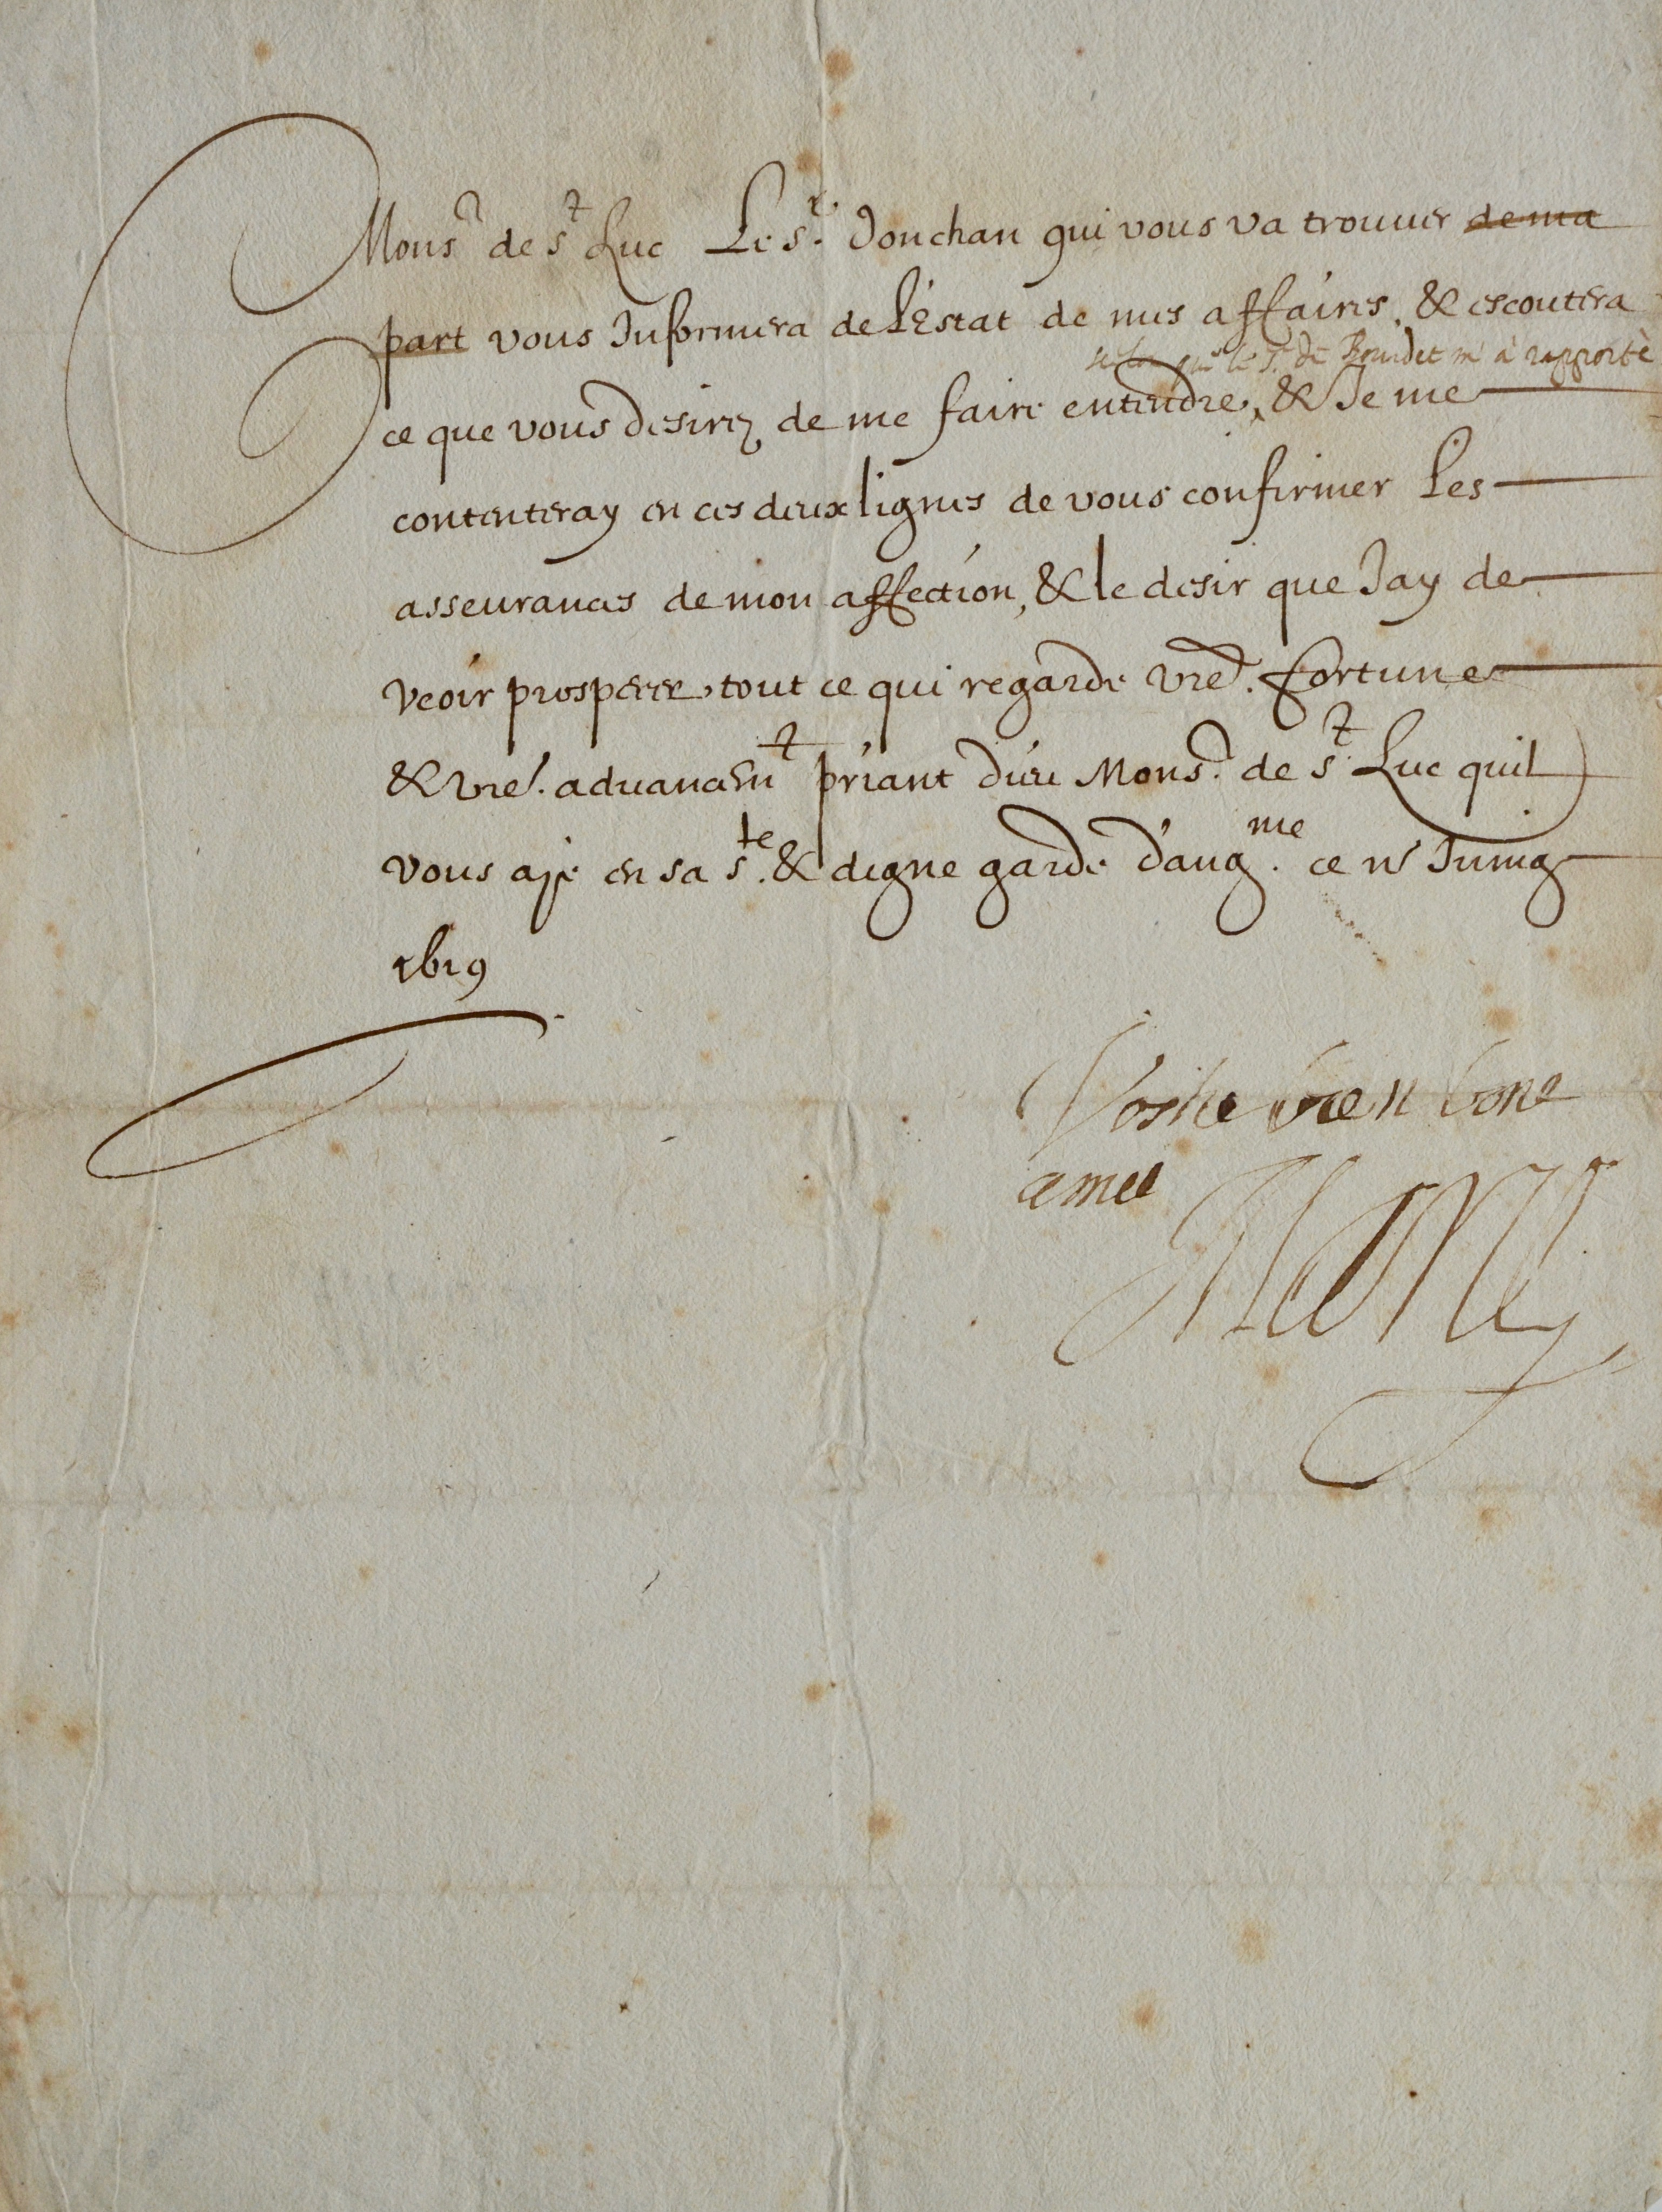 Mons.r de s.t Luc Le s.r Jonchan qui vous va trouuer de ma
part vous Informera de l'Estat de mes affaires, & escoutera
selon que le s.r de Bourdet m'a rapporté
ce que vous desirez de me faire entendre, & Je me
contenteray en ces deux lignes de vous confirmer les
asseurances de mon affection, & le desir que Jay de
veoir prosperer tout ce qui regarde vre. fortune
& vre. aduancem.t priant dieu Mons.r de s.t Luc quil
vous aye en sa s.te & digne garde d'aug.me ce Juing
1619
Vostre bien bone
amie
Marie